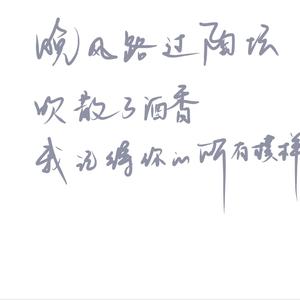 晚风路过陶坛
吹散了酒香
我记得你的所有模样